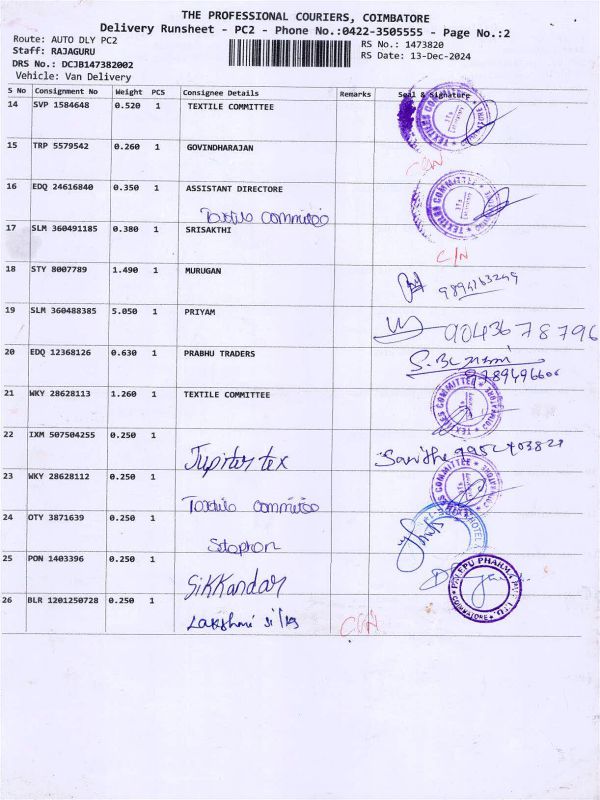 THE PROFESSIONAL COURIERS, COIMBATORE
Delivery Runsheet - PC2 - Phone No.:0422-3505555 - Page No.:2
Route: AUTO DLY PC2
Staff: RAJAGURU
DRS No.: DCJB147382002
Vehicle: Van Delivery
RS No.: 1473820
RS Date: 13-Dec-2024
S No Consignment No Weight PCS Consignee Details Remarks Seal & Signature
14 SVP 1584648 0.520 1 TEXTILE COMMITTEE
TEXTILES COMMITTEE
15 TRP 5579542 0.260 1 GOVINDHARAJAN
16 EDQ 24616840 0.350 1 ASSISTANT DIRECTORE
TEXTILES COMMITTEE
17 SLM 360491185 0.380 1 SRISAKTHI
C/N
18 STY 8007789 1.490 1 MURUGAN
9894163249
19 SLM 360488385 5.050 1 PRIYAM
9043678796
20 EDQ 12368126 0.630 1 PRABHU TRADERS
21 WKY 28628113 1.260 1 TEXTILE COMMITTEE
TEXTILES COMMITTEE
22 IXM 507504255 0.250 1 Jupiter tex
23 WKY 28628112 0.250 1
COMMITTEE
24 OTY 3871639 0.250 1
25 PON 1403396 0.250 1 Sikkandar
PHARMA
COIMBATORE
26 BLR 1201250728 0.250 1 Lakshmi silks